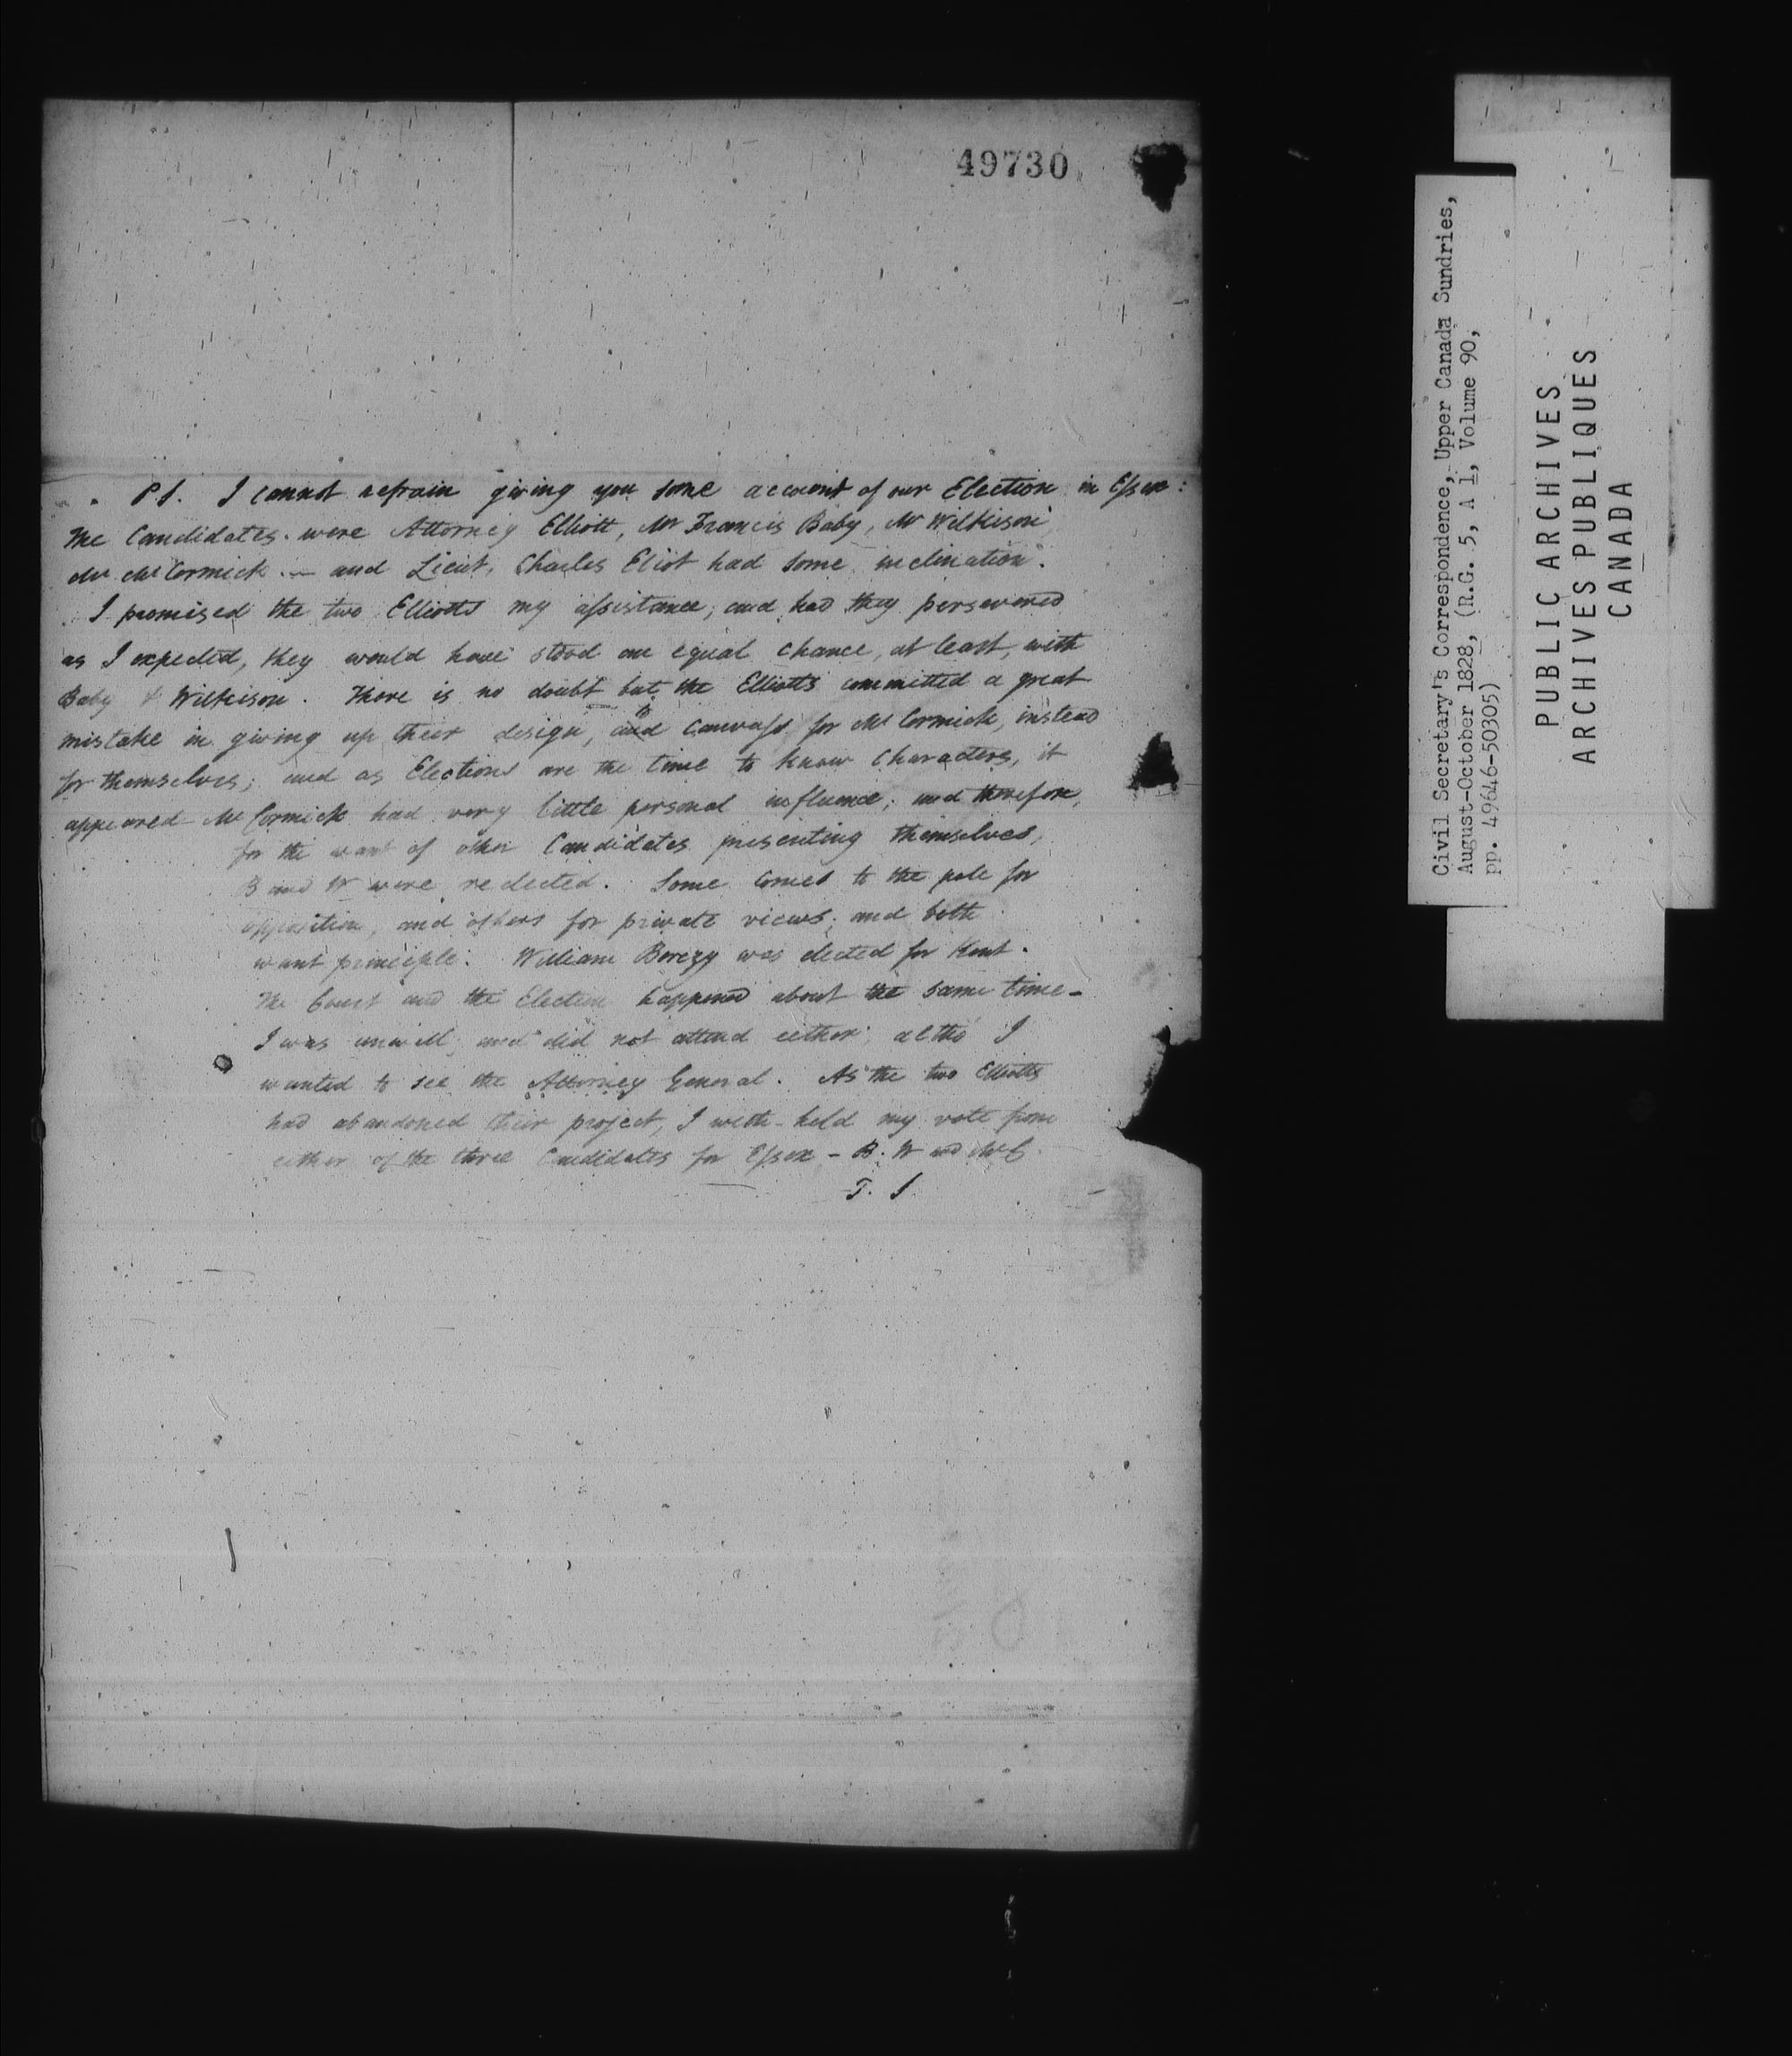 49730
P.S. I cannot refrain giving you some account of our Election in Essex:
The Candidates were Attorney Elliott, Mr Francis Baby, Mr Wilkison
Mr McCormick. — and Lieut. Charles Eliot had some inclination.
I promised the two Elliotts my assistance, and had they persevered
as I expected, they would have stood an equal chance, at least, with
Baby & Wilkison. There is no doubt but the Elliotts committed a great
mistake in giving up their design, and to canvass for McCormick, instead
for themselves; and as Elections are the time to know Characters, it
appeared McCormick had very little personal influence; and therefore,
for the want of other Candidates presenting themselves,
B and W were reelected. Some comes to the pole for
opposition, and others for private views; and both
want principle. William Berczy was elected for Kent.
The Court and the Election happened about the same time-
I was unwell, and did not attend either; altho' I
wanted to see the Attorney General. As the two Elliotts
had abandoned their project, I with-held my vote from
either of the three Candidates for Essex – B. W and McC.
T. S.
Civil Secretary's Correspondence, Upper Canada Sundries,
August-October 1828, (R.G. 5, A 1, Volume 90,
pp. 49646-50305)
PUBLIC ARCHIVES
ARCHIVES PUBLIQUES
CANADA